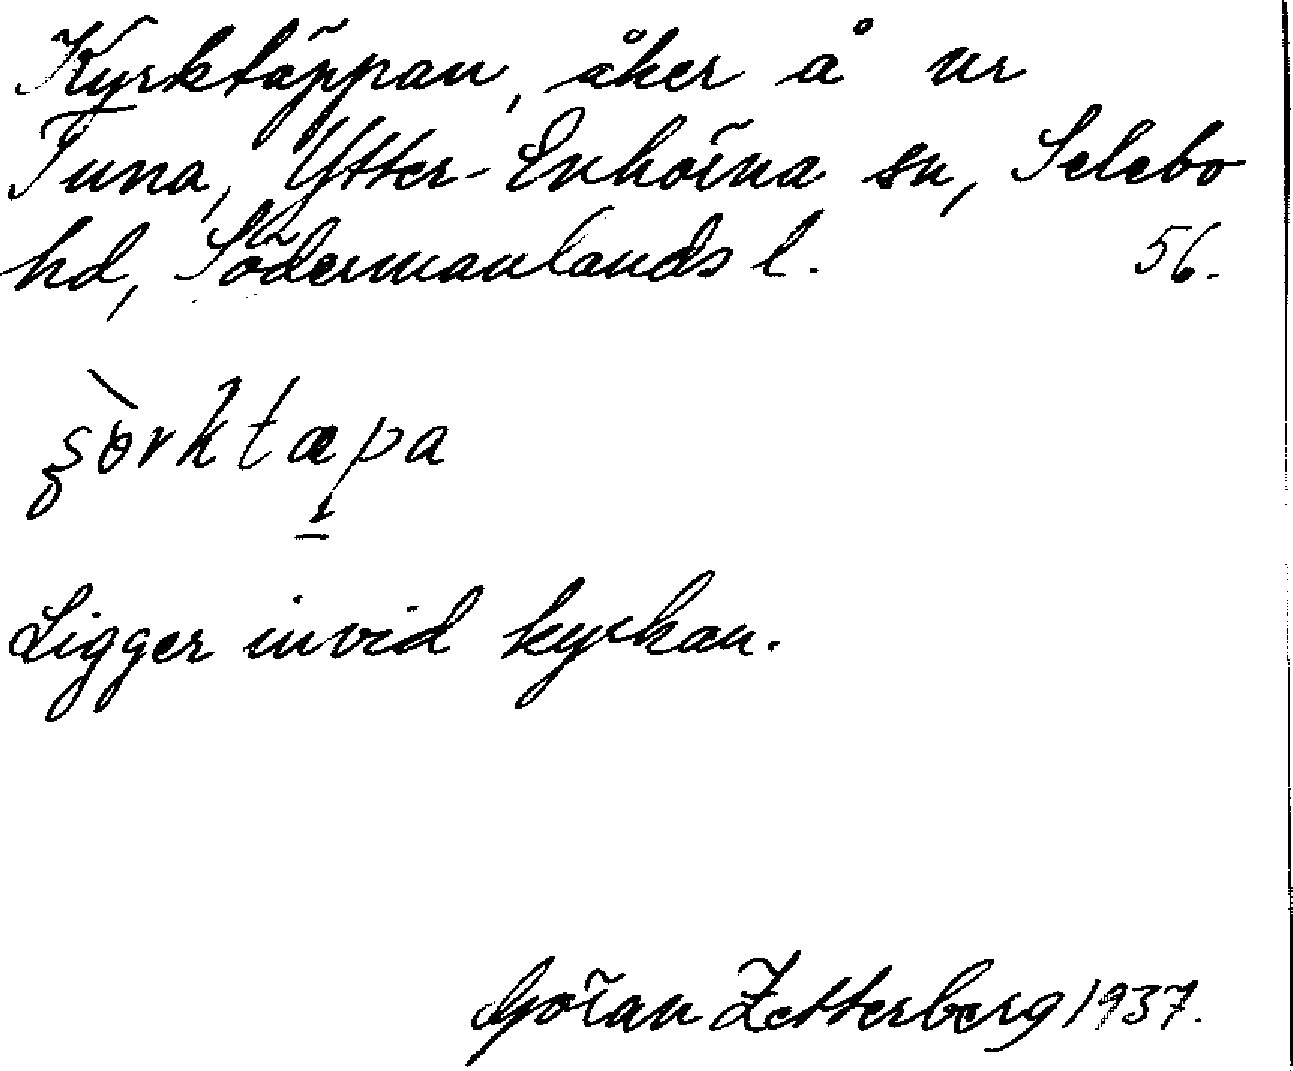 Kyrktäppan, åker å nr
Tuna, Ytter-Enhörna sn, Selebo
hd, Södermanlands l. 56.
şörktæpa
Ligger invid kyrkan.
Göran Zetterberg 1937.